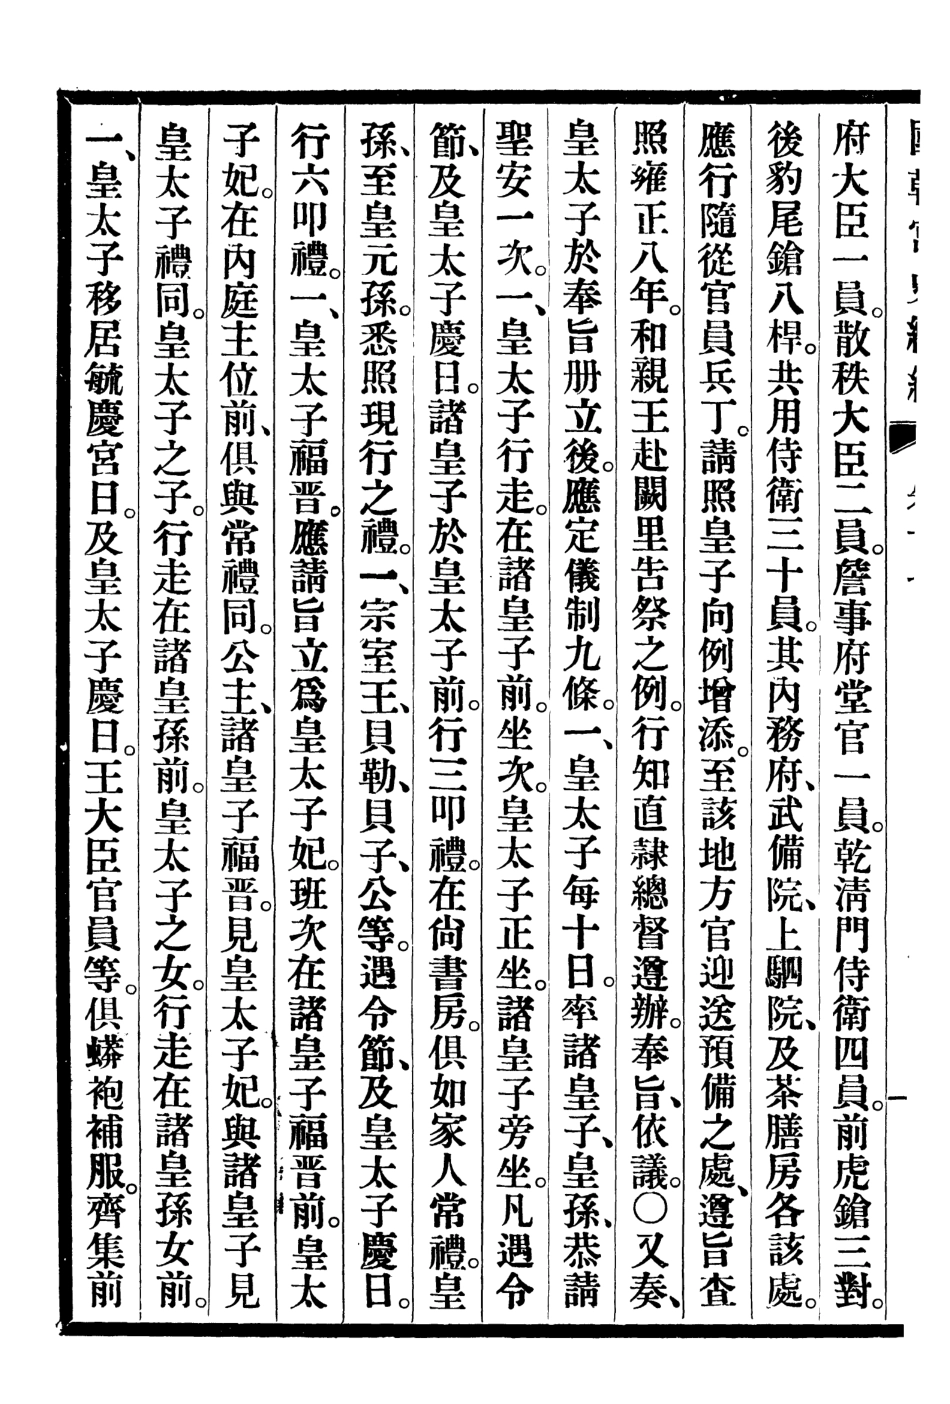 府大臣一員。散秩大臣二員。詹事府堂官一員。乾淸門侍衛四員。前虎鎗三對。
後豹尾鎗八桿。共用侍衛三十員。其內務府、武備院、上駟院、及茶膳房各該處。
應行隨從官員兵丁。請照皇子向例增添。至該地方官迎送預備之處、遵旨查
照雍正八年。和親王赴闕里告祭之例。行知直隷總督遵辦。奉旨、依議。〇又奏、
皇太子於奉旨册立後。應定儀制九條。一、皇太子每十日。率諸皇子、皇孫、恭請
聖安一次。一、皇太子行走。在諸皇子前。坐次。皇太子正坐。諸皇子旁坐。凡遇令
節、及皇太子慶日。諸皇子於皇太子前。行三叩禮。在尙書房。俱如家人常禮。皇
孫、至皇元孫。悉照現行之禮。一、宗室王、貝勒、貝子、公等。遇令節、及皇太子慶日。
行六叩禮。一、皇太子福晉。應請旨立爲皇太子妃。班次在諸皇子福晉前。皇太
子妃。在內庭主位前、俱與常禮同。公主、諸皇子福晉。見皇太子妃。與諸皇子見
皇太子禮同。皇太子之子。行走在諸皇孫前。皇太子之女。行走在諸皇孫女前。
一、皇太子移居毓慶宮日。及皇太子慶日。王大臣官員等。俱蟒袍補服。齊集前